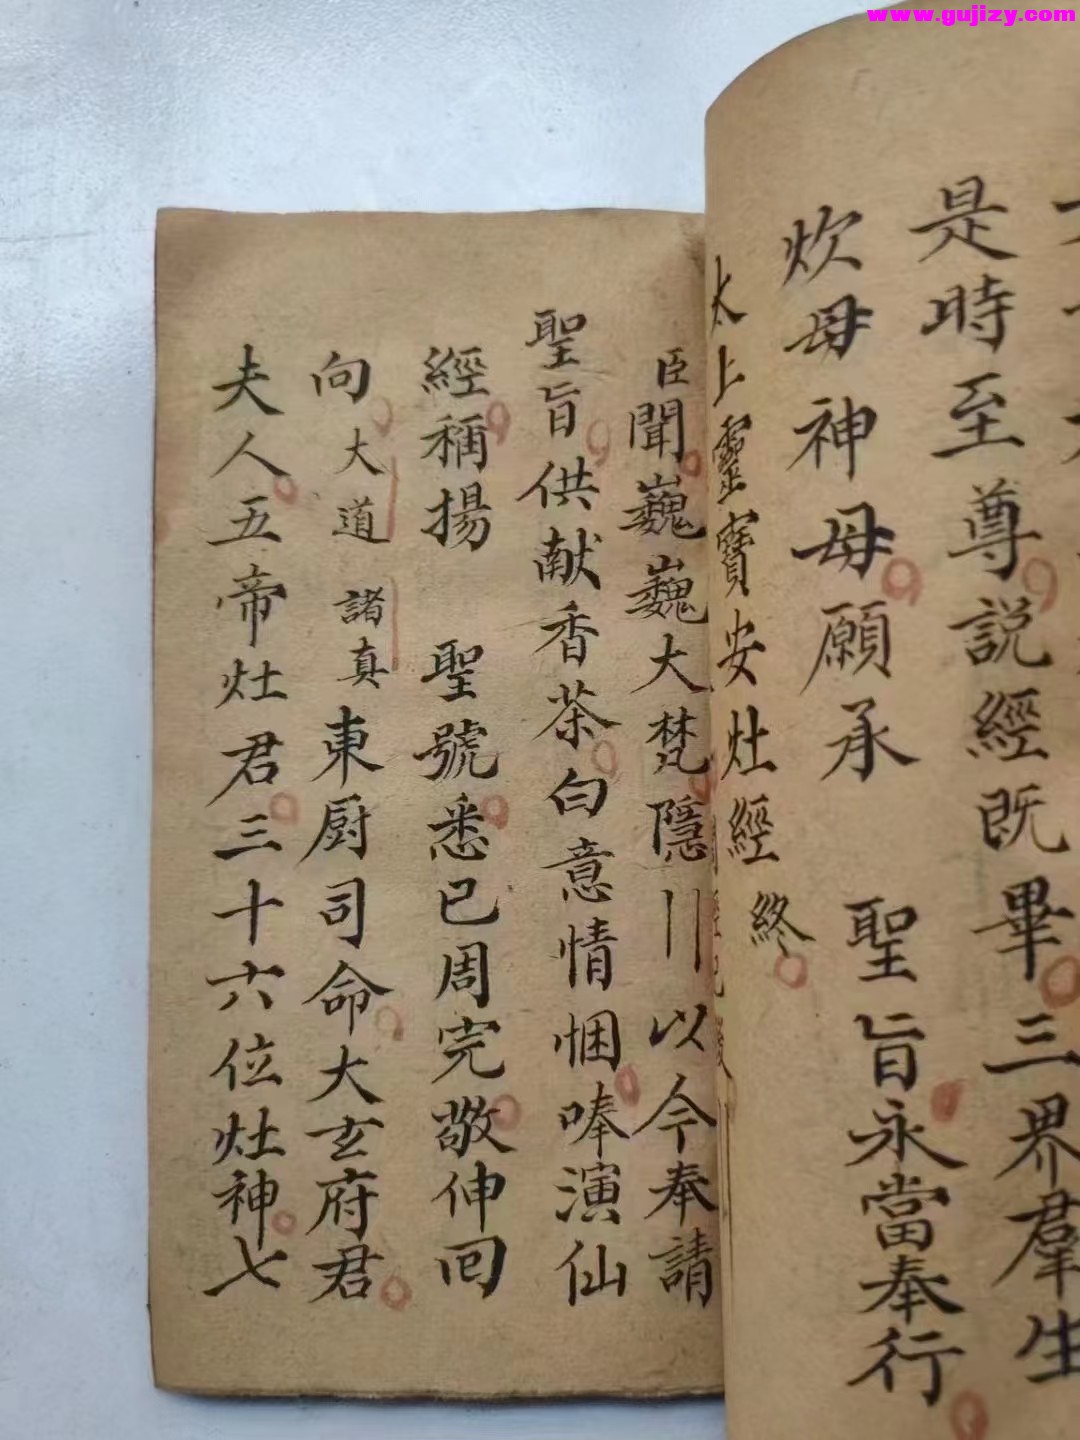 www.gujizy.com
是時至尊説經既畢三界羣生
炊母神母願承 聖旨永當奉行
太上靈寳安灶經終
臣聞巍巍大梵隱〢以今奉請
聖旨供献香茶白意情悃唪演仙
經稱揚 聖號悉已周完敬伸回
向大道 諸真東厨司命大玄府君
夫人五帝灶君三十六位灶神七